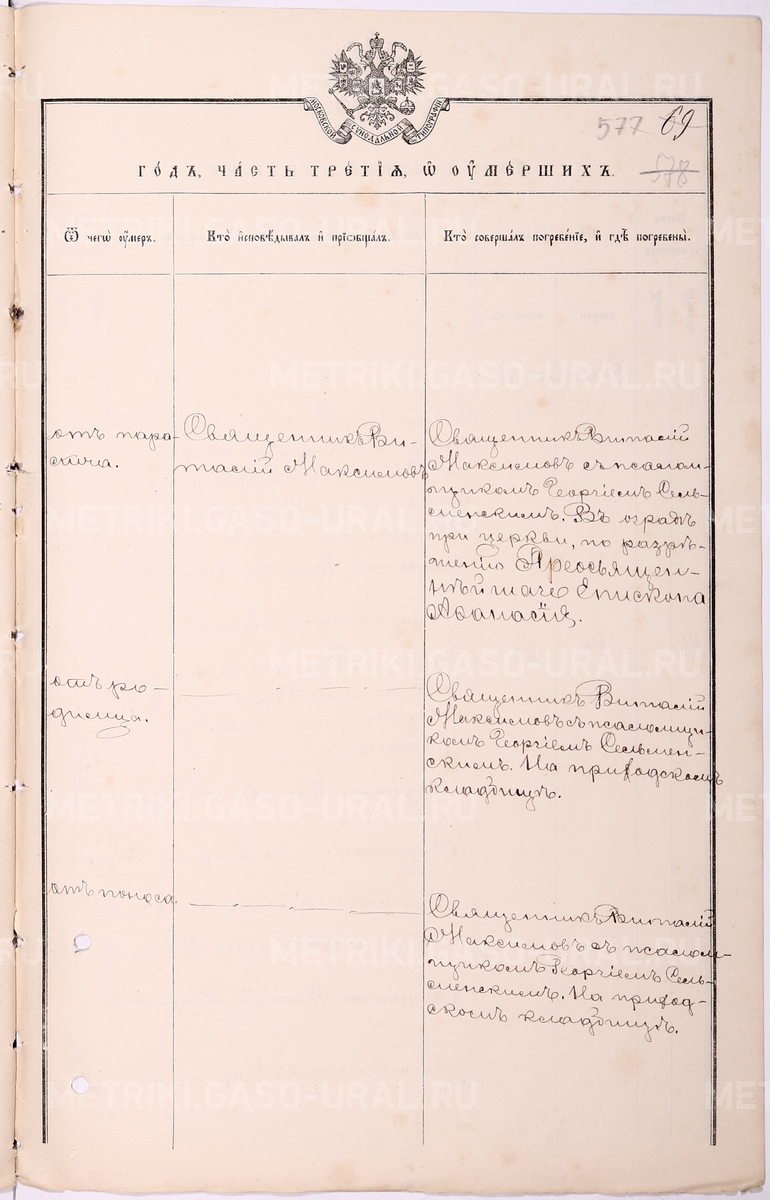 МОСКОВСКОЙ СѴНОДАЛЬНОЙ ТИПОГРАФІИ
577 69
578
ГО́ДЪ, ЧА́СТЬ ТРЕ́ТІѦ, Ѡ҆ ОУ҆МЕ́РШИХЪ.
Ѿ чегѡ̀ оу҆́меръ.
Кто̀ и҆сповѣ́дывалъ и҆ прїѡбща́лъ.
Кто̀ соверша́лъ погребе́нїе, и҆ гдѣ̀ погребены̀.
отъ пара-
лича.
Священникъ Ви-
талій Максимовъ
Священникъ Виталій
Максимовъ съ псалом-
щикомъ Георгіемъ Сель-
менскимъ. Въ оградѣ
при церкви, по разрѣ-
шенію Преосвящен-
нѣйшаго Епископа
Аѳанасія.
отъ ро-
димца.
Священникъ Виталій
Максимовъ съ псаломщи-
комъ Георгіемъ Сельмен-
скимъ. На приходскомъ
кладбищѣ.
отъ поноса.
Священникъ Виталій
Максимовъ съ псалом-
щикомъ Георгіемъ Сель-
менскимъ. На приход-
скомъ кладбищѣ.
METRIKI.GASO-URAL.RU